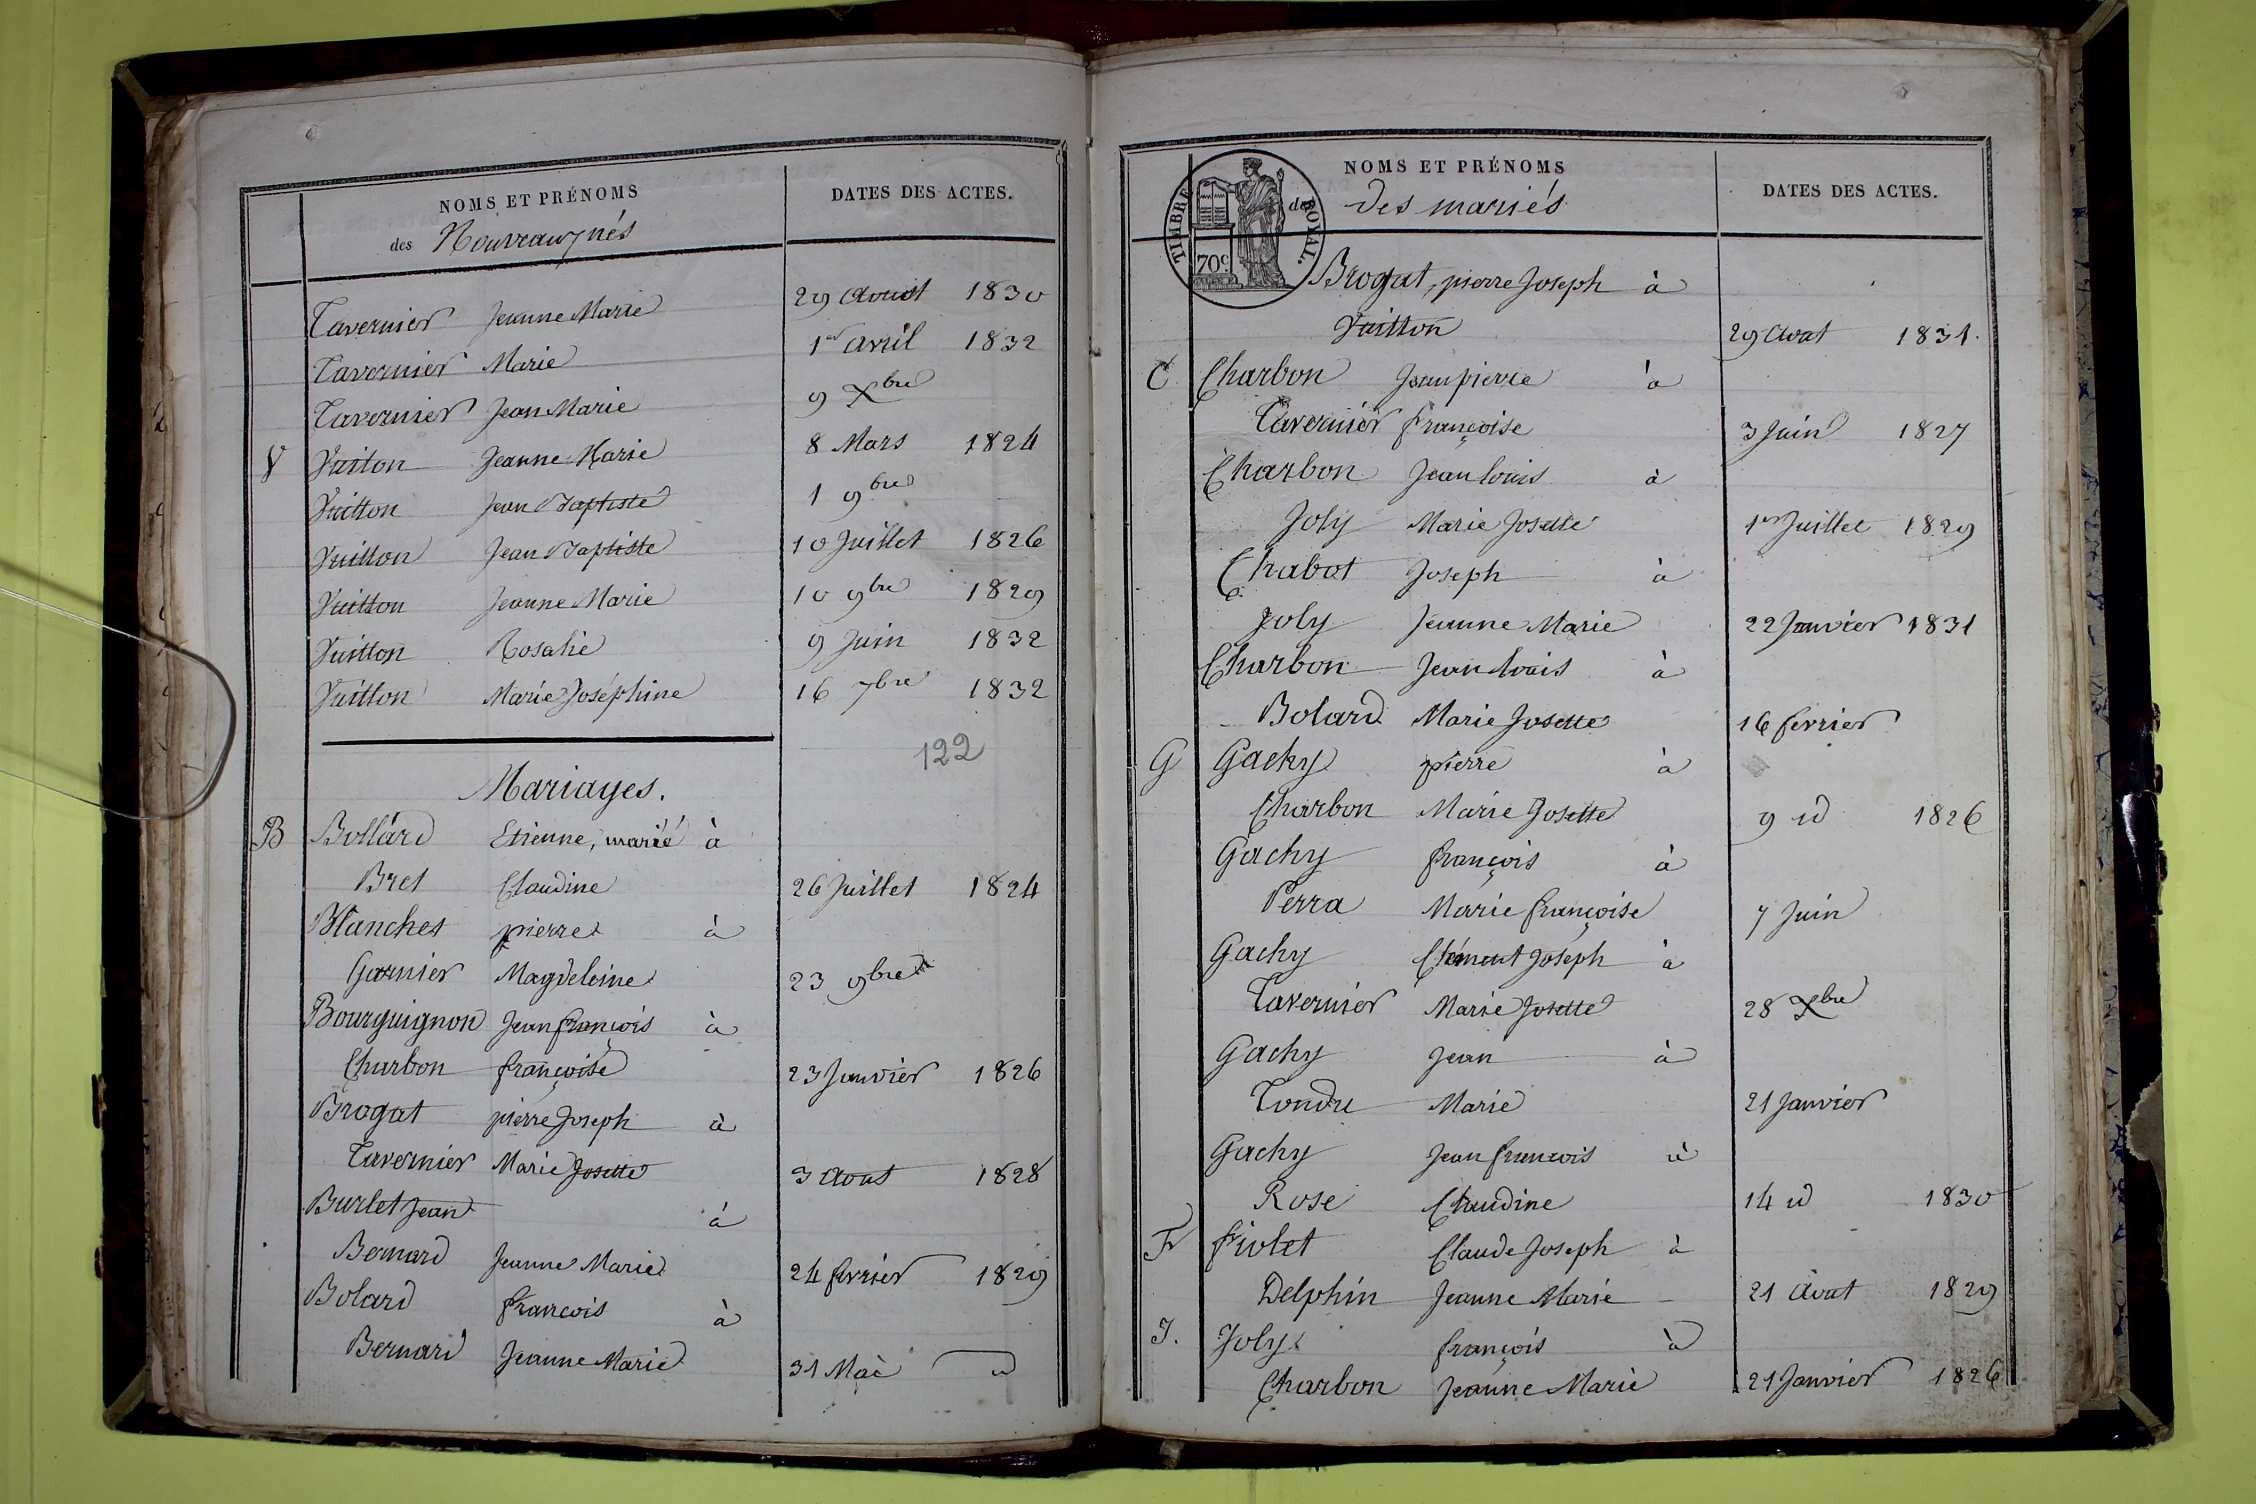 NOMS ET PRÉNOMS
des Nouveaux nés
DATES DES ACTES.
Tavernier Jeanne Marie 29 Aoust 1830
Tavernier Marie 1er avril 1832
Tavernier Jean Marie 9 Xbre
V Vuiton Jeanne Marie 8 Mars 1824
Vuitton Jean Baptiste 1 9bre
Vuitton Jean Baptiste 10 Juillet 1826
Vuitton Jeanne Marie 10 9bre 1829
Vuitton Rosalie 9 Juin 1832
Vuitton Marie Joséphine 16 7bre 1832
122
Mariages.
B Bollard Etienne, marié à
Bret Claudine 26 Juillet 1824
Blanchet pierre à
Garnier Magdeleine 23 9bre
Bourguignon Jean françois à
Charbon françoise 23 Janvier 1826
Brogat pierre Joseph à
Tavernier Marie Josette 3 Aout 1828
Burlet Jean à
Bernard Jeanne Marie 24 fevrier 1829
Bolard francois à
Bernard Jeanne Marie 31 Mai id
NOMS ET PRÉNOMS
des mariés
DATES DES ACTES.
TIMBRE ROYAL.
70c.
Brogat, pierre Joseph à
Vuitton 29 Aoat 1831.
C Charbon Jean pierre à
Tavernier françoise 3 Juin 1827
Charbon Jean louis à
Joly Marie Josette 1er Juillet 1829
Chabot Joseph à
Joly Jeanne Marie 22 Janvier 1831
Charbon Jean louis à
Bolard Marie Josette 16 fevrier
G Gachy pierre à
Charbon Marie Josette 9 id 1826
Gachy françois à
Perra Marie françoise 7 Juin
Gachy Clément Joseph à
Tavernier Marie Josette 28 Xbre
Gachy Jean à
Tondu Marie 21 Janvier
Gachy Jean francois à
Rose Claudine 14 id 1830
fr friolet Claude Joseph à
Delphin Jeanne Marie 21 Aoat 1829
J. Joly françois à
Charbon Jeanne Marie 21 Janvier 1826